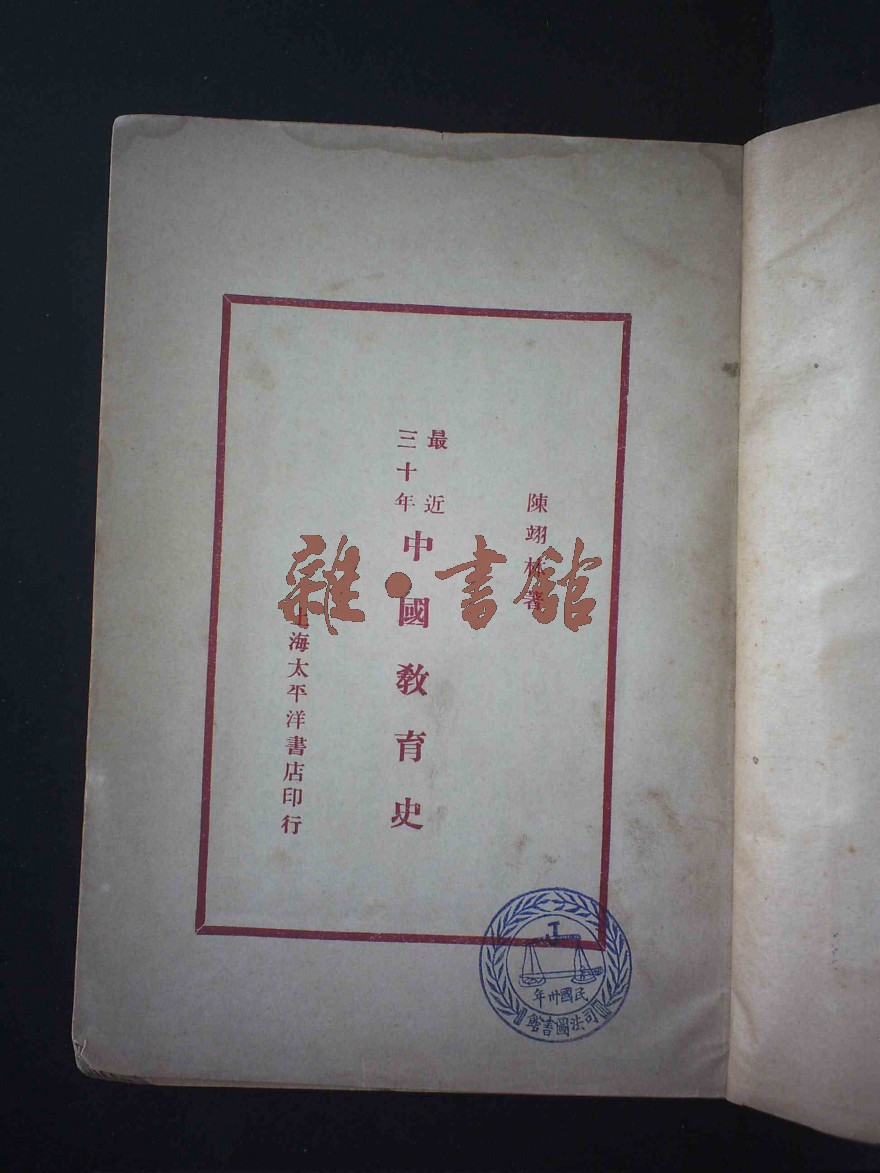 陳翊林著
最近
三十年
中國教育史
上海太平洋書店印行
雜·書館
J
民國卅年
司法圖書館